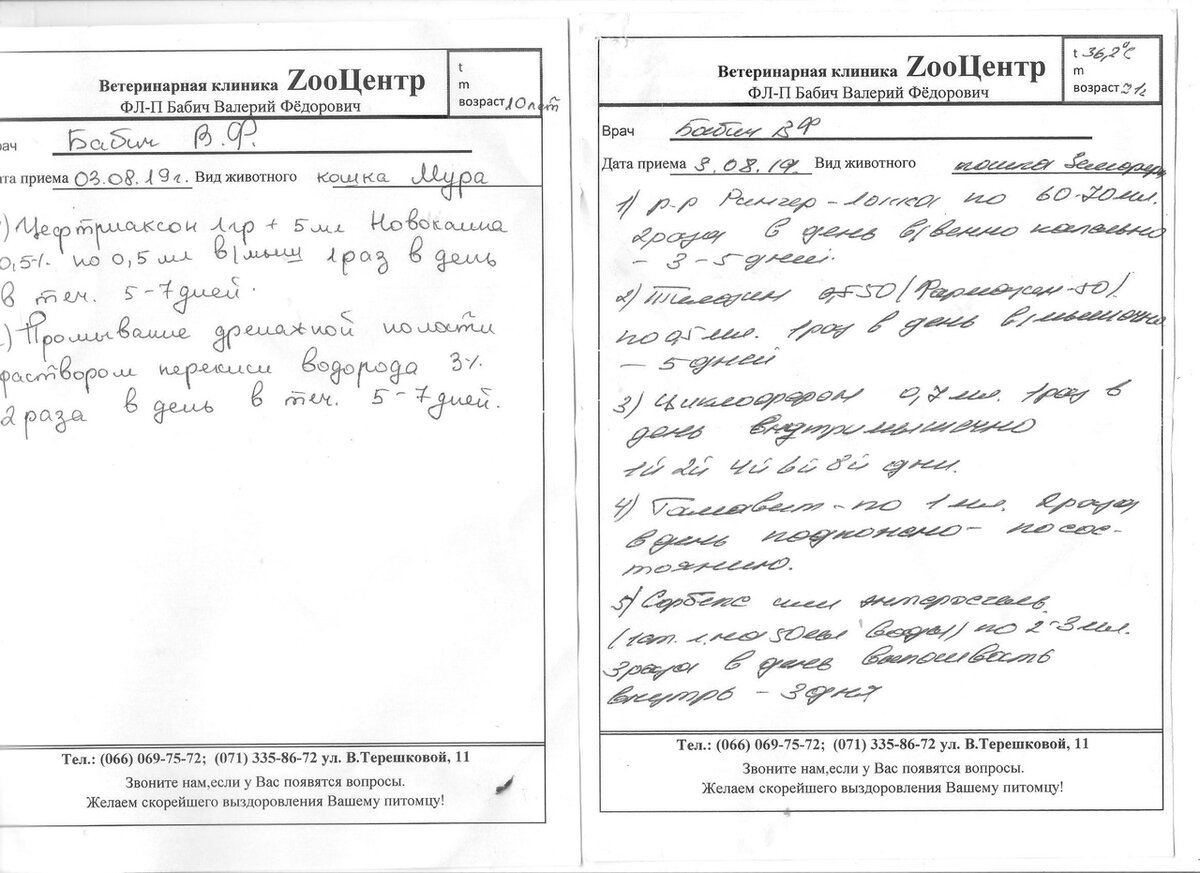 Ветеринарная клиника ZooЦентр
ФЛ-П Бабич Валерий Фёдорович
t
m
возраст 10 лет
рач Бабич В.Ф.
ата приема 03.08.19г. Вид животного кошка Мура
) Цефтриаксон 1гр + 5 мл Новокаина
0,5% по 0,5 мл в/мыш 1 раз в день
в теч. 5-7 дней.
) Промывание дренажной полости
раствором перекиси водорода 3%
2 раза в день в теч. 5-7 дней.
Тел.: (066) 069-75-72; (071) 335-86-72 ул. В.Терешковой, 11
Звоните нам,если у Вас появятся вопросы.
Желаем скорейшего выздоровления Вашему питомцу!
Ветеринарная клиника ZooЦентр
ФЛ-П Бабич Валерий Фёдорович
t 36,2°C
m
возраст
Врач Бабич ВФ
Дата приема 3.08.19. Вид животного кошка
1) р-р Рингер-Локка по 60-70 мл.
2 раза в день в/венно капельно
- 3-5 дней.
2) по 0,5 мл. 1 раз в день в/мышечно
- 5 дней
3) Циклоферон 0,7 мл. 1 раз в
день внутримышечно
1й 2й 4й 6й 8й дни.
4) Гамавит - по 1 мл. 2 раза
в день подкожно - по сос-
тоянию.
5) Сорбекс или энтеросгель
(1 ст. л. на 50 мл воды) по 2-3 мл.
3 раза в день выпаивать
внутрь - 3 дня
Тел.: (066) 069-75-72; (071) 335-86-72 ул. В.Терешковой, 11
Звоните нам,если у Вас появятся вопросы.
Желаем скорейшего выздоровления Вашему питомцу!